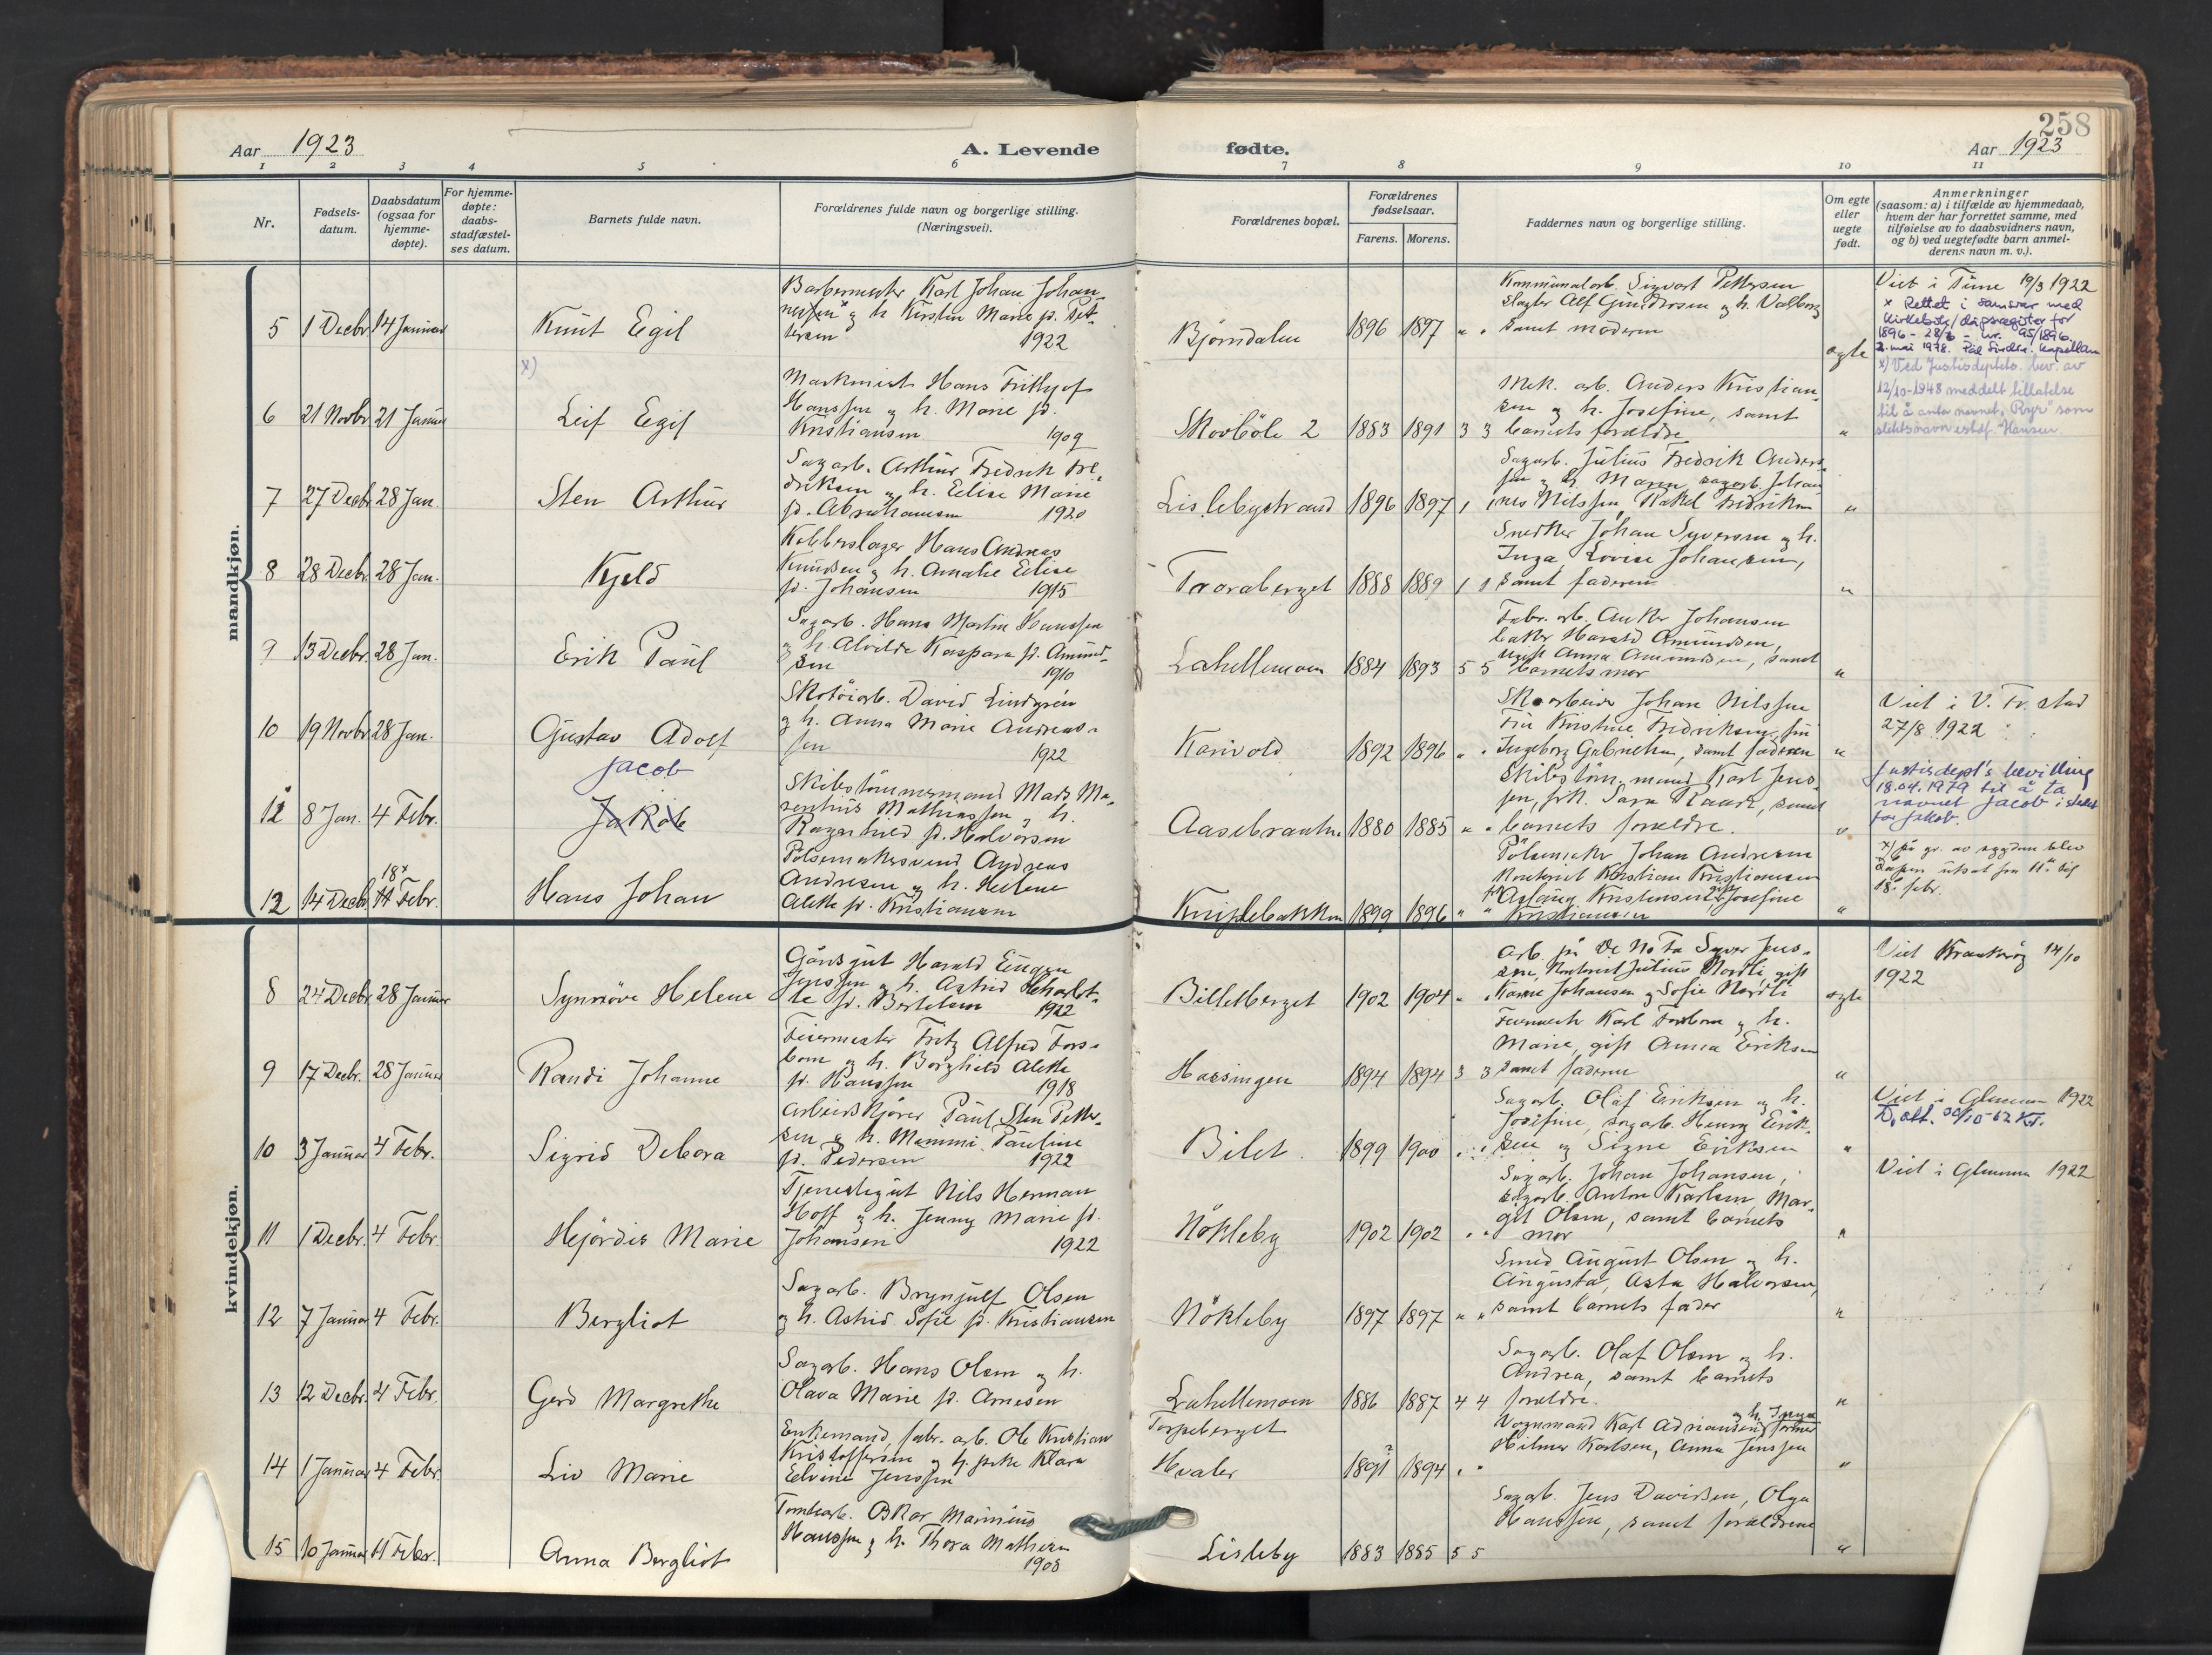 258
Aar 1923
A. Levende
fødte.
Aar 1923
1 2 3 4 5 6 7 8 9 10 11
Nr.
Fødsels-
datum.
Daabsdatum
(ogsaa for
hjemme-
døpte).
For hjemme-
døpte:
daabs-
stadfæstel-
ses datum.
Barnets fulde navn.
Forældrenes fulde navn og borgerlige stilling.
(Næringsvei).
Forældrenes bopæl.
Forældrenes
fødselsaar.
Farens. Morens.
Faddernes navn og borgerlige stilling.
Om egte
eller
uegte
født.
Anmerkninger
(saasom: a) i tilfælde av hjemmedaab,
hvem der har forrettet samme, med
tilføielse av to daabsvidners navn,
og b) ved uegtefødte barn anmel-
derens navn m. v.).
mandkjøn.
5 1 Decbr. 14 Januar
Knut Egil
Barbermester Karl Johan Johan-
nessen x og h. Kirsten Marie f. Pet-
tersen 1922
Bjørndalen 1896 1897 " "
Kommunalarb. Sigvart Pettersen
Slagter Alf Gundersen og h. Valborg
samt moderen
egte
Viet i Tune 19/3 1922
x Rettet i samsvar med
kirkebok/dåpsregister for
1896 - 28/6 - nr. 95/1896.
2. mai 1978. kapellan
x)
6 21 Novbr. 21 Januar
Leif Egil
Maskinist Hans Frithjof
Hanssen og h. Marie f.
Kristiansen 1909
Skovbøle 2 1883 1891 3 3
Mek. arb. Anders Kristian-
sen og h. Josefine, samt
barnets forældre
"
x) Ved Justisdeptets bev. av
12/10-1948 meddelt tillatelse
til å anta navnet "Ryr" som
slektsnavn istdf. Hansen.
7 27 Decbr. 28 Jan.
Sten Arthur
Sagarb. Arthur Fredrik Fre-
driksen og h. Edise Marie
f. Abrahamsen 1920
Lislebystrand 1896 1897 1 1
Sagarb. Julius Fredrik Anders-
sen og h. Maren, sagarb. Johan-
nes Nilssen, Rakel Fredriksen
"
8 28 Decbr. 28 Jan.
Kjeld
Kobberslager Hans Andreas
Knudsen og h. Amalie Edise
f. Johansen 1915
Traraberget 1888 1889 1 1
Snedker Johan Syversen og h.
Inga, Lovise Johansen,
samt faderen
"
9 13 Decbr. 28 Jan.
Erik Paul
Sagarb. Hans Martin Hanssen
og h. Alvilde Kaspara f. Amund-
sen 1910
Lahellemoen 1884 1893 5 5
Fabr. arb. Anker Johansen
Harald Amundsen,
Anna Amundsen, samt
barnets mor
"
10 19 Novbr. 28 Jan.
Gustav Adolf
Skotöiarb. David Lindgrén
og h. Anna Marie Andreas-
sen 1922
Karivold 1892 1896 " "
Skoarbeider Johan Nilssen
Fru Kristine Fredriksen, fru
Ingeborg Gabrielsen, samt faderen
"
Viet i V. Fr. stad
27/8 1922
11 8 Jan. 4 Febr.
Jacob
Jakob
Skibstömmermand Mads Ma-
renius Mathiassen og h.
Ragnhild f. Halvorsen
Aasebraaten 1880 1885 " "
Skibstöm.mand Karl Jens-
sen, frk. Sara Raask, samt
barnets forældre.
"
Justisdept's bevilling
18.04.1979 til å ta
navnet Jacob istdet
for Jakob.
12 14 Decbr. 18x 11 Febr.
Hans Johan
Pölsemakersvend Andreas
Andresen og h. Helene
Alette f. Kristiansen
Kniplebakken 1899 1896 " "
Pölsemaker Johan Andresen
Kristian Kristiansen
Aslaug Kristensen, gift Josefine
Kristiansen
"
x) på gr. av sygdom blev
daapen utsat fra 11. til
18. febr.
kvindekjøn.
8 24 Decbr. 28 Januar
Synnöve Helene
Gårdsgut Harald Eugen
Jenssen og h. Astrid Scharlot-
te f. Bertelsen 1922
Billetberget 1902 1904 " "
Arb. på De No Fa Syver Jens-
sen, Julius Nordli, gift
Karine Johansen og Sofie Nordli
egte
Viet Kraakerøy 14/10
1922
9 17 Decbr. 28 Januar
Randi Johanne
Feiermester Fritz Alfred Fors-
bom og h. Borghild Alette
f. Hanssen 1918
Hassingen 1894 1894 3 3
Feiermester Karl Forsbom og h.
Marie, gift Anna Eriksen
samt faderen
"
10 3 Januar 4 Febr.
Sigrid Debora
Arbeidskjører Paul Sten Petter-
sen og h. Mammi Pauline
f. Pedersen 1922
Bilet 1899 1900 " "
Sagarb. Olaf Eriksen og h.
Josefine, sagarb. Henry Erik-
sen og Signe Eriksen
"
Viet i Glemmen 1922
D. att. 30/10-62 Kf.
11 1 Decbr. 4 Febr.
Hejördis Marie
Tjenestegut Nils Herman
Hoff og h. Jenny Marie f.
Johansen 1922
Nökleby 1902 1902 " "
Sagarb. Johan Johansen,
sagarb. Anton Karlsen, Mar-
git Olsen, samt barnets
mor
"
Viet i Glemmen 1922
12 7 Januar 4 Febr.
Bergliot
Sagarb. Brynjulf Olsen
og h. Astrid Sofie f. Kristiansen
Nökleby 1897 1897 " "
Smed August Olsen og h.
Augusta, Asta Halvorsen,
samt barnets fader
"
13 12 Decbr. 4 Febr.
Gerd Margrethe
Sagarb. Hans Olsen og h.
Olava Marie f. Arnesen
Lahellemoen 1886 1887 4 4
Sagarb. Olaf Olsen og h.
Andrea, samt barnets
forældre.
"
14 1 Januar 4 Febr.
Liv Marie
Enkemand, fabr. arb. Ole Kristian
Kristoffersen og h. Klara
Edvine Jenssen
Torpeberget
Hvaler 1891 1894 " "
Vognmand Karl Adriansen og h.
Hilmer Karlsen, Anna Jenssen
"
15 10 Januar 11 Febr.
Anna Bergliot
Tomtearb. Oskar Marinius
Hanssen og h. Thora Mathisen
1908
Lisleby 1883 1885 5 5
Sagarb. Jens Davidsen, Olga
Hanssen, samt forældrene
"